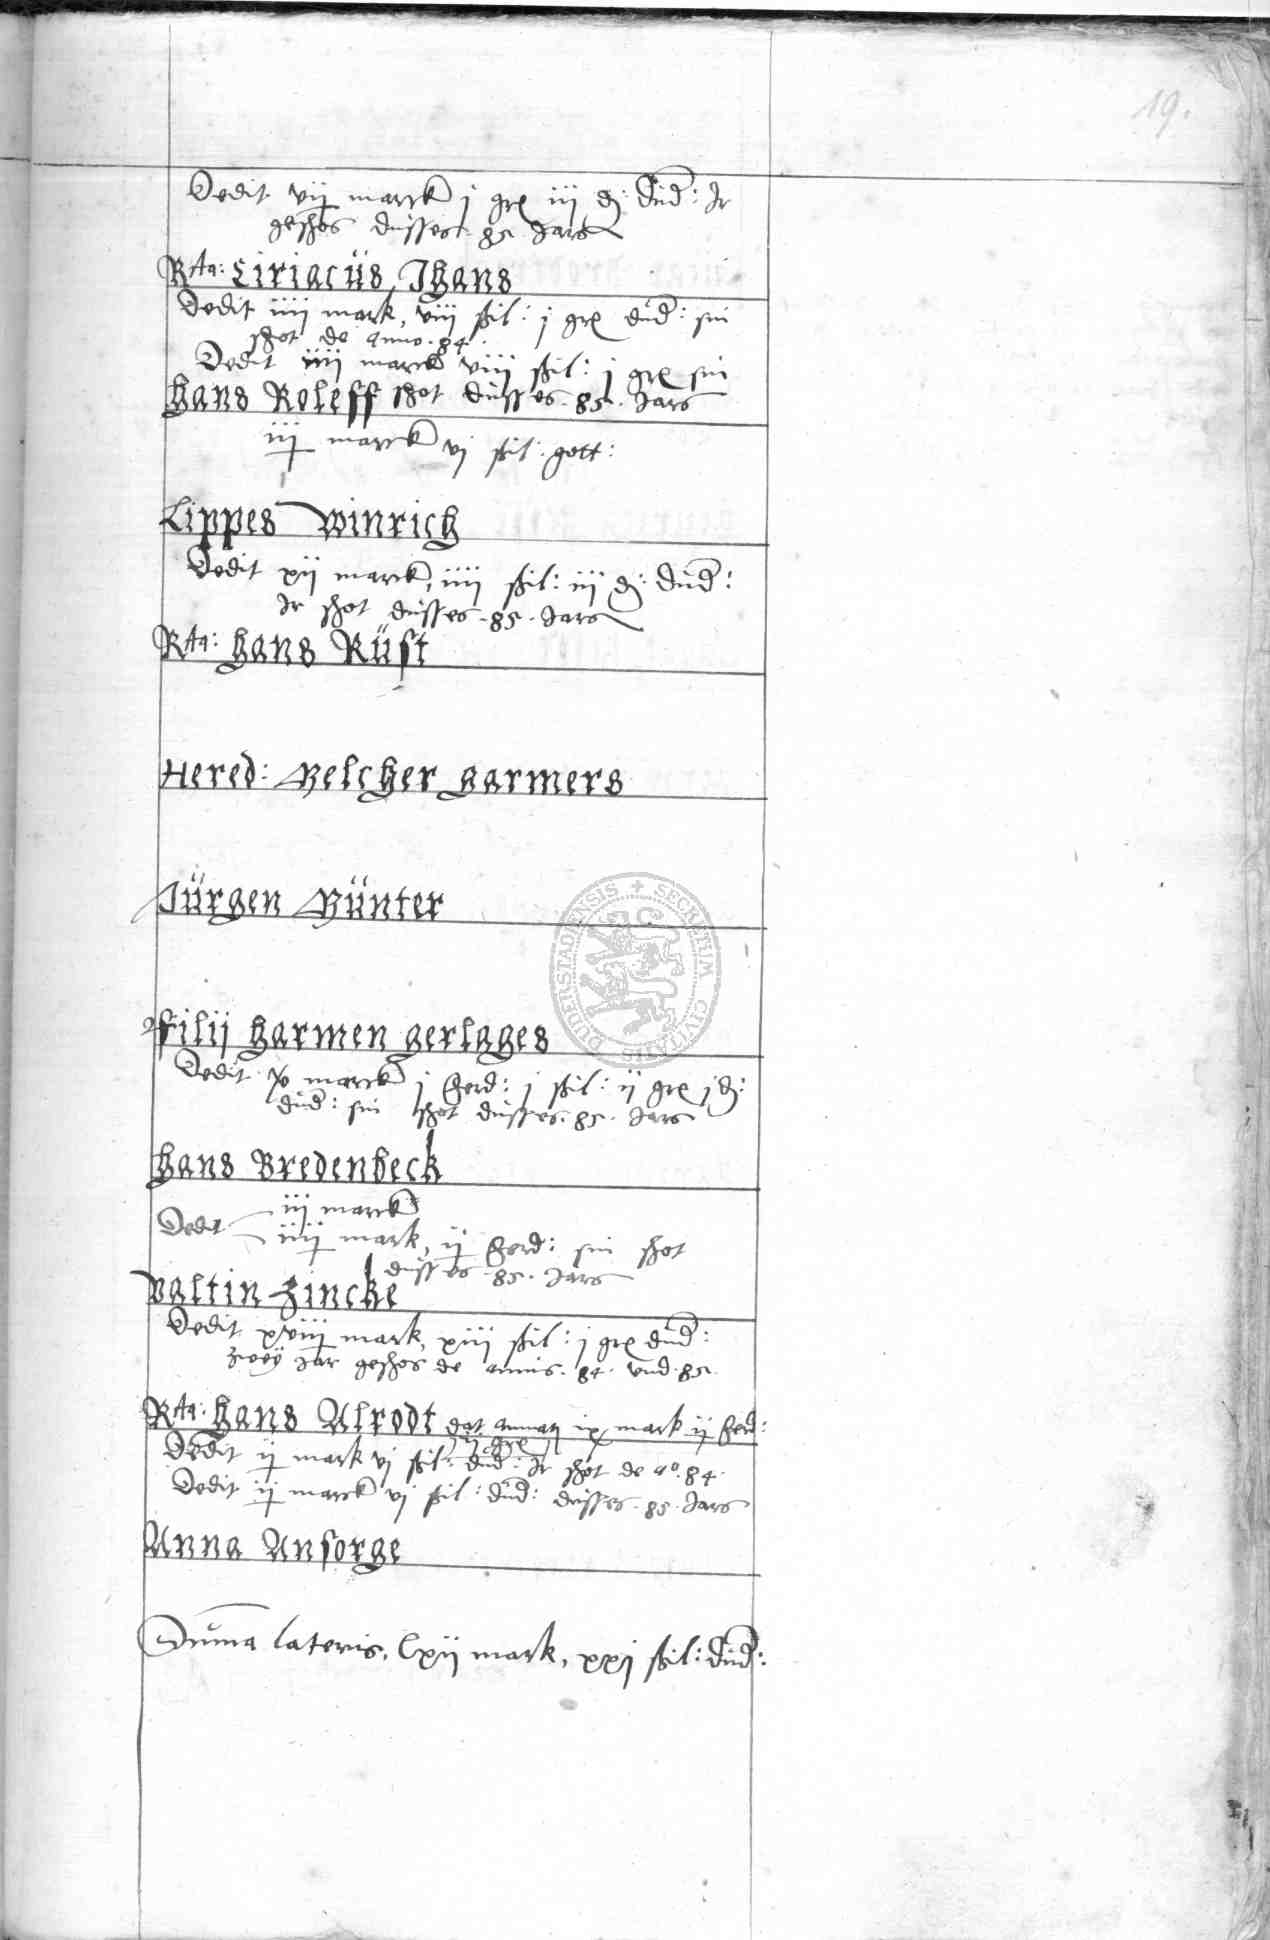 19.
Dedit vij marck j gr iij d: dud: Ir
geshos dusses . 85 . Jars
Rta: Ciriacüs Jhans
Dedit iiij mark, viij ßil: j gr dud: sin
shot de anno . 84 .
Dedit iiij marck viij ßil: j gr sin
Hans Roleff shot dusses . 85 . Jars
iij marck vj ßil: gott:
Lippes Winrich
Dedit xij marck, iiij ßil: iij d: dud:
Ir shot dusses . 85 . Jars
Rta: Hans Rüst
Hered: Melcher Harmers
Jürgen Münter
Filij Harmen Gerlages
Dedit marck j ferd: j ßil: ij gr j d:
dud: sin shot dusses . 85 . Jars
Hans Bredenbeck
iij marck
Dedit iiij mark, ij ferd: sin shot
dusses . 85 . Jars
Valtin Zincke
Dedit xviij mark, xiij ßil: j gr dud:
zwey Jar geshos de annis . 84 . vnd . 85 .
Rta: Hans Alrodt dat ix mark ij ferd:
ij gr
Dedit ij mark vj ßil: dud: Ir shot de ao. 84 .
Dedit ij marck vj ßil: dud: dusses . 85 . Jars
Anna Ansorge
Suma lateris, lxij mark, xxj ßil: dud:
SECRETUM CIVITATIS DUDERSTADIENSIS